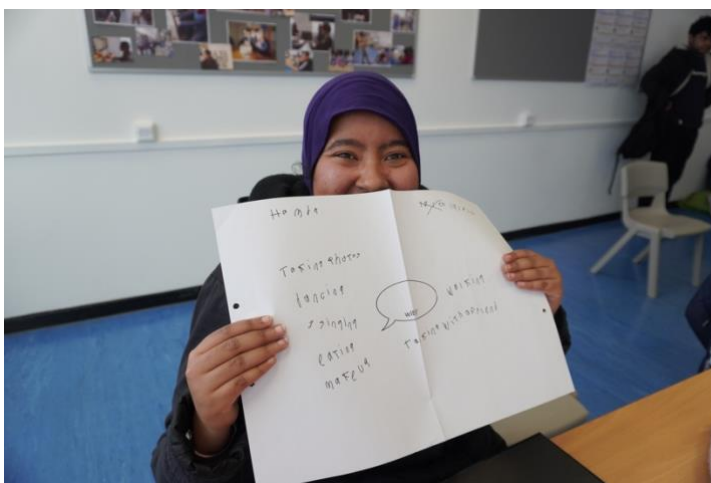 Hamda
Taking Photos
dancing
singing
eating
makeup
walking
Talking with a friend